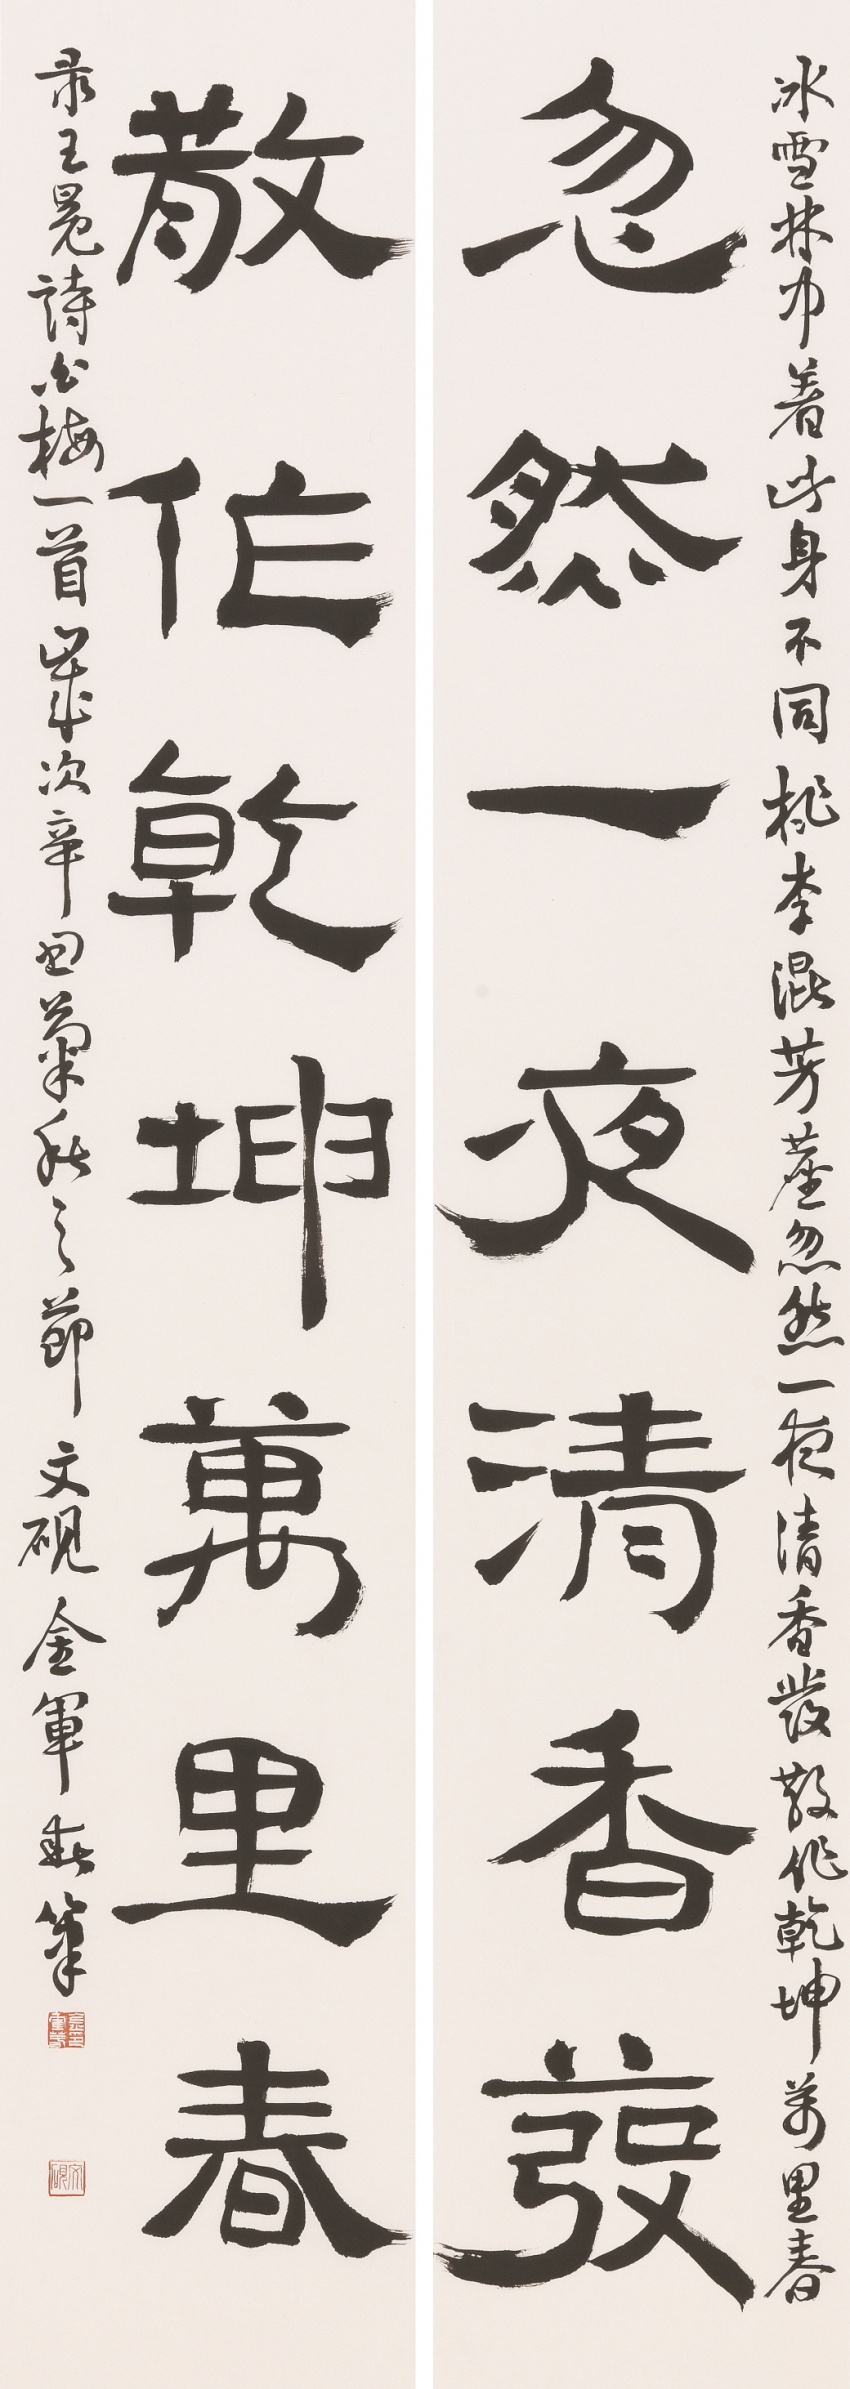 冰雪林中著此身不同桃李混芳塵忽然一夜清香發散作乾坤萬里春
忽然一夜清香發
散作乾坤萬里春
录王冕詩白梅一首歲次辛丑菊秋之節文砚金軍敬筆
文砚